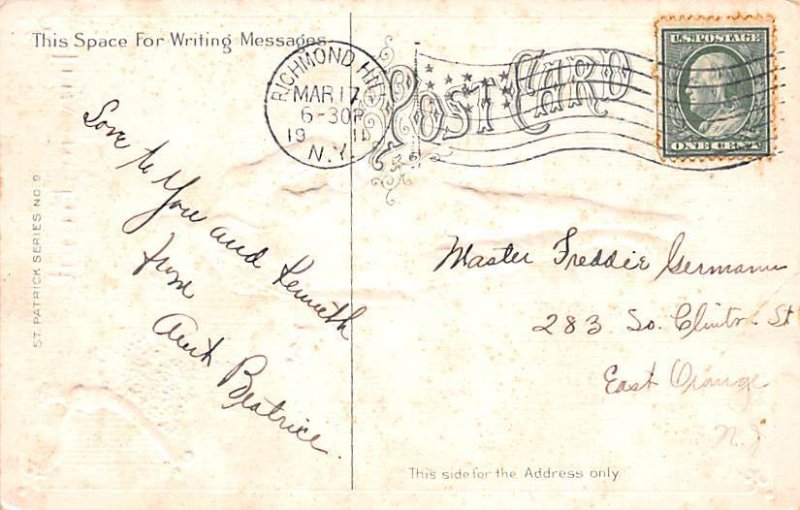 This Space For Writing Messages
RICHMOND HILL
MAR 17
6-30P
19 11
N.Y.
POST CARD
U.S. POSTAGE
ONE CENT
ST. PATRICK SERIES NO. 9
Love to You and Kenneth
from
Aunt Beatrice.
Master Freddie Germann
283 So. Clinton St
East Orange
N.J
This side for the Address only.